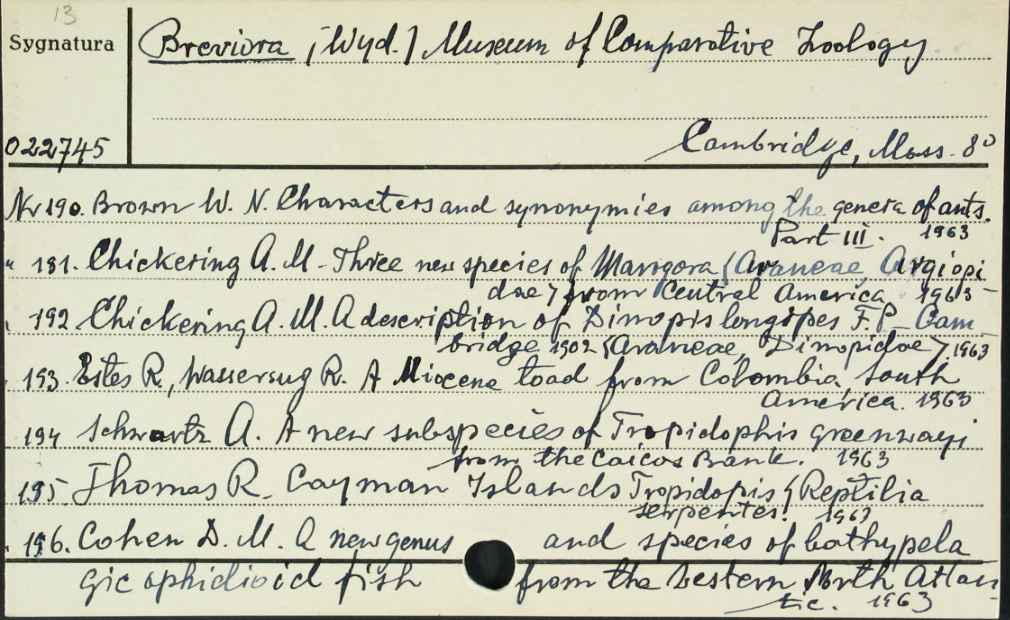 13
Sygnatura
Breviora (Wyd.) Museum of Comparative Zoology
022745
Cambridge, Mass. 8°
Nr 190. Brown W. N. Characters and synonymies among the genera of ants.
Part III. 1963
" 191. Chickering A. M - Three new species of Mangora (Araneae, Argiopi
dae) from Central America 1963 -
" 192 Chickering A. M. A description of Dinopis longipes F. P. Cam
bridge 1902 (Araneae, Dinopidae). 1963
" 193. Estes R., Wassersug R. A Miocene toad from Colombia, South
America. 1963
194 Schwartz A. A new subspecies of Tropidophis greenwayi
from the Caicos Bank. 1963
195 Thomas R. Cayman Islands Tropidopis (Reptilia
serpentes! 1963
" 196. Cohen D. M. A new genus and species of bathypela
gic ophidioid fish from the Western North Atlan
tic. 1963